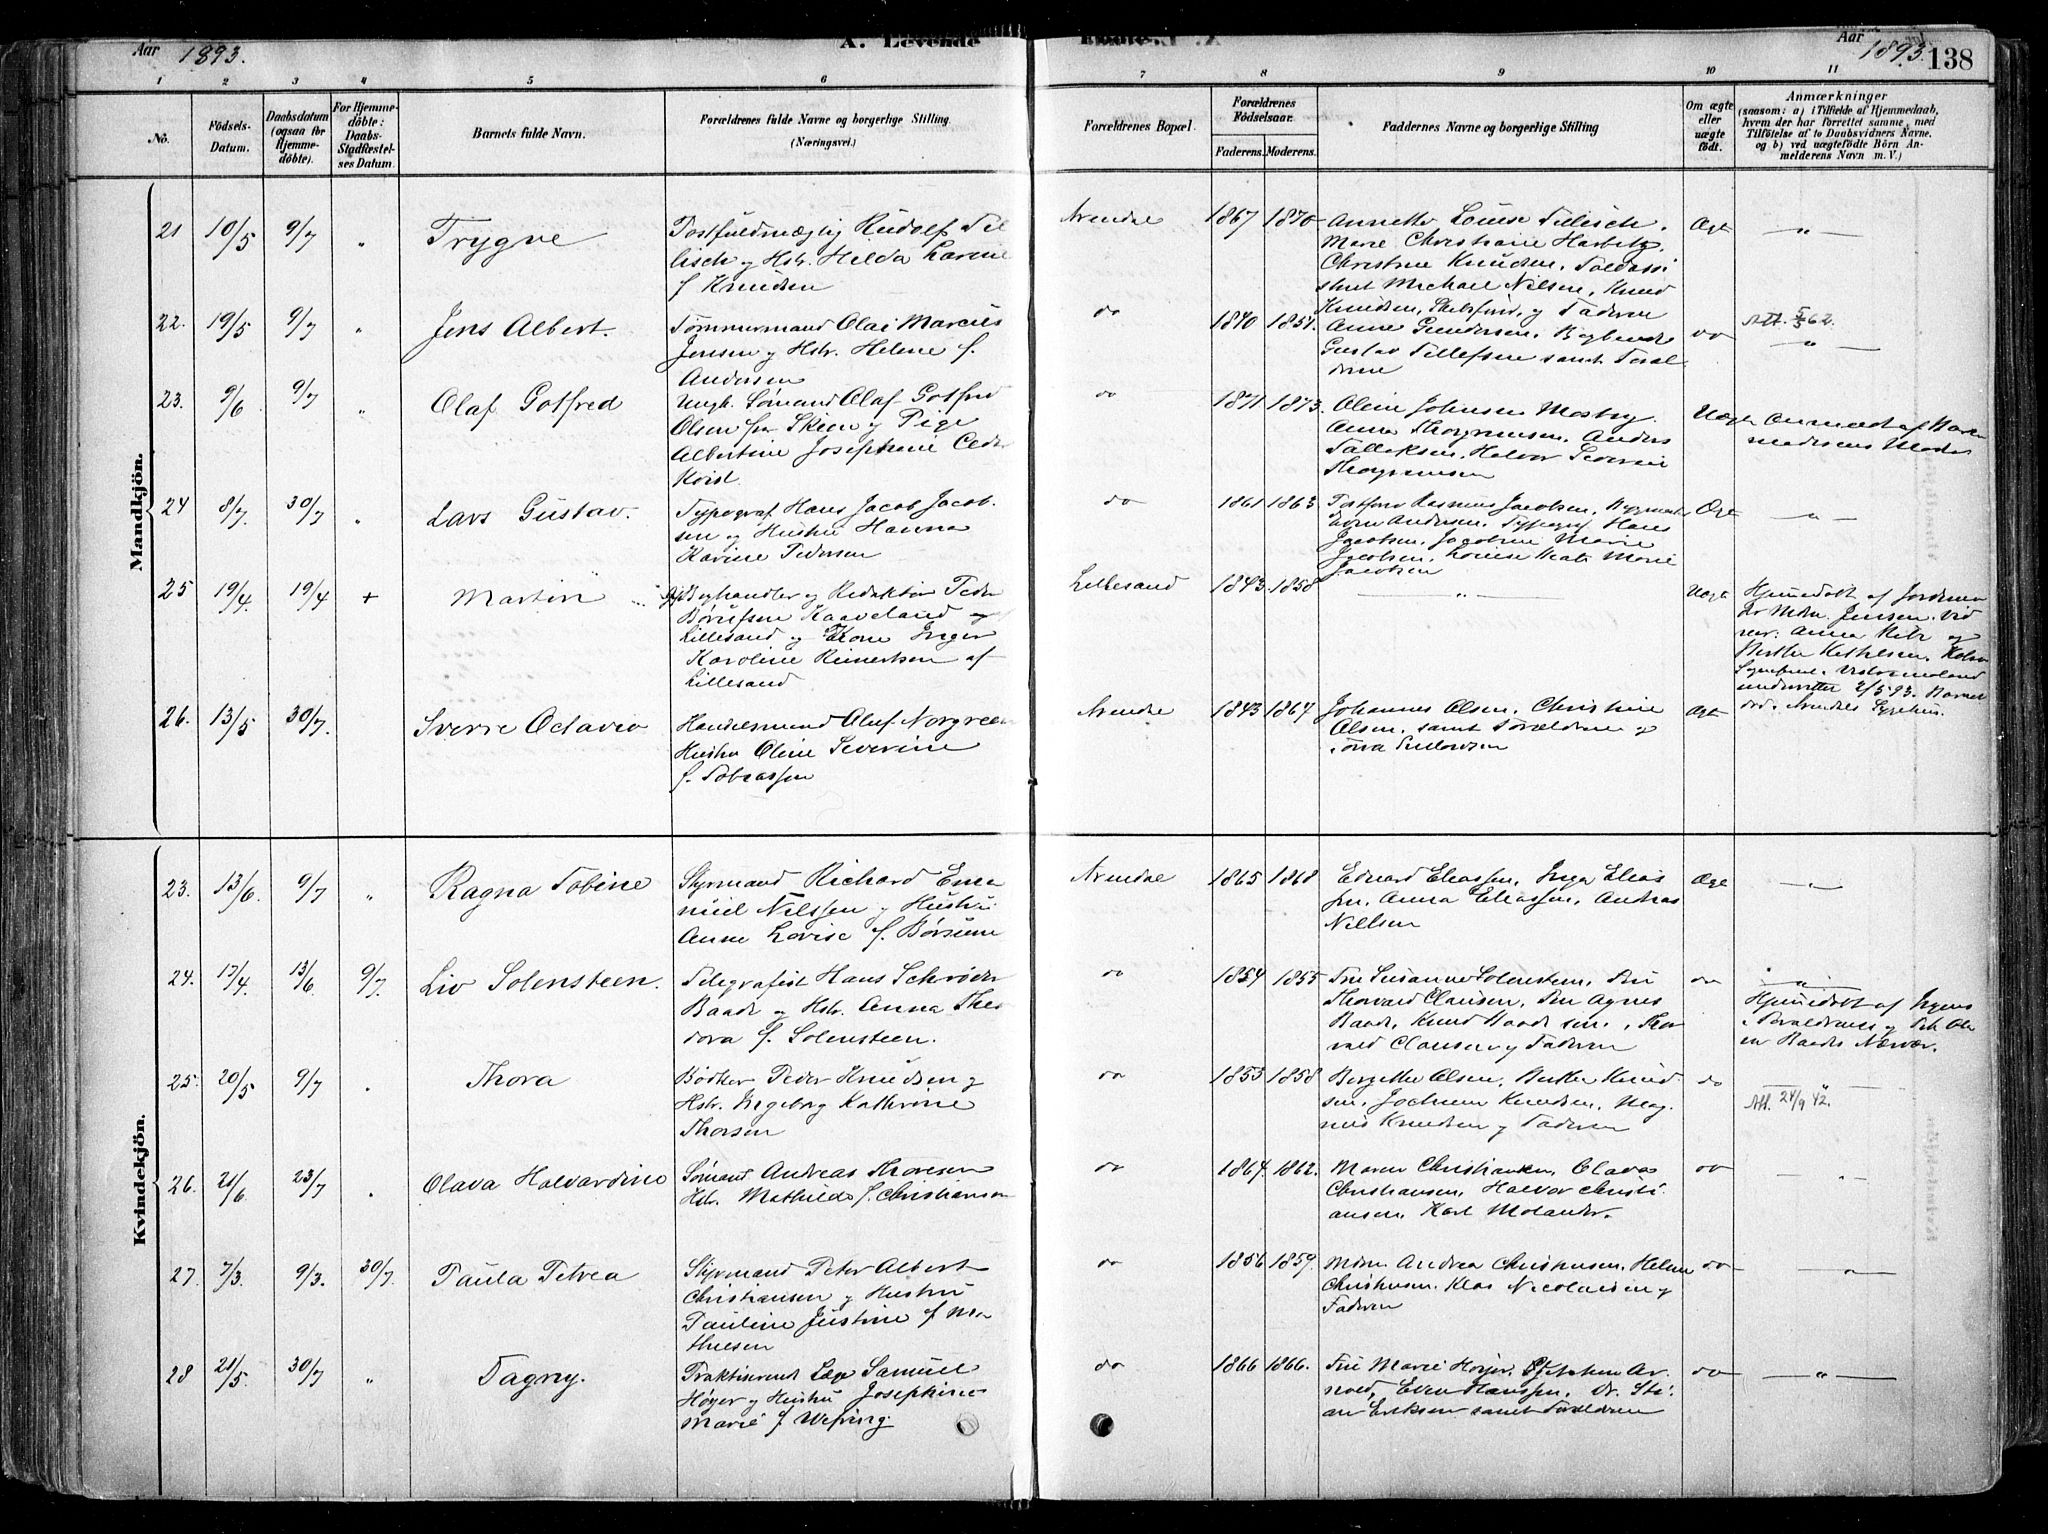 Aar 1893. A. Levende Fødte. Aar 1893. 138
1 2 3 4 5 6 7 8 9 10 11
No. Födsels-Datum. Daabsdatum (ogsaa for Hjemme-döbte). For Hjemme-döbte: Daabs-Stadfæstel-ses Datum. Barnets fulde Navn. Forældrenes fulde Navne og borgerlige Stilling. (Næringsvei.) Forældrenes Bopæl. Forældrenes Födselsaar. Faderens. Moderens. Faddernes Navne og borgerlige Stilling Om ægte eller uægte födt. Anmærkninger
(saasom: a) i Tilfælde af Hjemmedaab, hvem der har forrettet samme, med Tilföielse af to Daabsvidners Navne. og b) ved uægtefödte Börn Anmelderens Navn m. V.)
Mandkjön.
21 10/5 9/7 " Trygve
Postfuldmægtig Rudolf Til
lisch og Hstr. Hilda Larine
f Knudsen
Arendal 1867 1870
Annette Louise Tillisch.
Marie Christiane Harbitz,
Christine Knudsen. Toldassi
stent Michael Nilsen, Knud
Knudsen, og Faderen
Ægt
22. 19/5 9/7 " Jens Albert.
Tømmermand Olai Marcus
Jensen og Hstr. Helene f.
Andersen
do 1840 1851.
Anne Gundersen.
Gustav Tellefsen samt Foræl
drene
do Att. 5/5 62.
23. 9/6 9/7 " Olaf Gotfred
Ungk. Sømand Olaf Gotfred
Olsen fra Skien og Pige
Albertine Josephine Ceder
kvist.
do 1871 1873.
Oline Johnsen Mosby.
Anna Thorgrimsen. Anders
Tallaksen. Halvor Severin
Thorgrimsen
Uægte Anmeldt af Barn
moderens Moder
24 8/7. 30/7 " Lars Gustav.
Typograf Hans Jacob Jacob
sen og Hustru Hanna
Karine Pedersen
do 1861 1863
Postfører Rasmus Jacobsen,
Andersen. Typograf Hans
Jacobsen. Jacobine Marie
Jacobsen, Louise Marie
Jacobsen
Ægt
25 19/4. 19/4 + Martin
Boghandler og Redaktør Peder
Børufsen Kaaveland
Lillesand og Kone Inger
Karoline Reinertsen af
Lillesand
Lillesand 1843. 1858
Uægt
Hjemmedøbt af Jordemo
der Mdm. Jensen. Vid
ner: Anna og
Berthe Kethelsen.
underrettet 2/5 93. Barnet
død i Arendals Sygehus.
26. 13/5 30/7. Sverre Octavio
Handelsmand Oluf Norgreen
Hustru Oline Severine
f. Tobiassen
Arendal 1843 1864
Johannes Olsen, Christine
Olsen, samt Forældrene og
Ægt
Kvindekjön.
23. 13/6. 9/7 " Ragna Tobine
Styrmand Richard Ema
nuel Nilssen og Hustru
Anne Lovise f. Børsum
Arendal 1865 1868
Edvard Eliassen, Inga Elias
sen, Anna Eliassen, Andreas
Nilssen
Ægt
24. 17/4. 13/6 9/7. Liv Solensteen.
Telegrafist Hans Schrøder
Baade og Hstr. Anna Theo
dora f. Solensteen.
do 1854 1855
Fru Susanne Solensteen, Fru
Thorvald Clausen, Fru Agnes
Baade, Knud Baade sen., Thor
vald Clausen og Faderen
do
Hjemmedøbt af
i Forældrenes og
Baades Nærvær.
25. 20/5 9/7 " Thora
Bødker Peder Knudsen og
Hstr. Ingeborg Kathrine
Thorsen
do 1853 1858
Borgethe Olsen, Berthe Knud
sen, Jochum Knudsen, Mag
nus Knudsen og Faderen
do
Att. 24/9 42.
26. 21/6. 23/7 " Olava Halvardine
Sømand Andreas Thoresen
Hstr. Mathilde f. Christiansen
do 1864. 1862.
Maren Christiansen, Olava
Christiansen, Halvor Christi
ansen. Karl Molander.
do
27. 7/3. 9/3. 30/7. Paula Petrea
Styrmand Peter Albert
Christiansen og Hustru
Pauline Justine f Ma
thiesen
do 1856 1859.
Mdm Andrea Christensen. Helene
Christensen. Klas Nicolaisen og
Faderen
do
28 21/5. 30/7 " Dagny.
Praktiserende Læge Samuel
Høyer og Hustru Josephine
Marie f Wefring.
do 1866 1866.
Fru Marie Høyer, Stephen Ar
nold, Even Hanssen, Dr. Sti
an Eriksen samt Forældrene
do